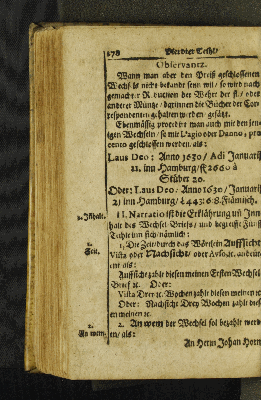 178 Vierdter Theil/
Observantz.
Wann man aber den Preiß geschlossenen
Wechsels nicht bekandt seyn wil/ so wird nach
gemachter Reduction der Wehrt der ſt./ oder
anderer Müntze/ darinnen die Bücher der Cor-
respondenten gehalten werden/ gesetzt.
Ebenmässig procedirt man auch mit denjeni-
igen Wechseln/ so mit L'agio oder Danno, pro
cento geschlossen werden, als:
Laus Deo: Anno 1630/ Adi Januarii
21. inn Hamburg/ 2660 à
Stüber 20.
Oder: Laus Deo, Anno 1630/ Januarij
21 inn Hamburg/ 443:6:8. Flämisch.
2. Inhalt. II. Narratio ist die Erklärung und Inn-
halt des Wechsel Brieffs/ und begreifft Fünff
Theile in sich/ nämlich:
1. Zeit. 1. Die Zeit/ durch das Wörtlein Auffsicht
Vista oder Nachsicht/ oder Uso &c. andeu-
tent als:
Auffsicht zahlt diesen meinen Ersten Wechsel
Brieff &c. Oder:
Vista Drey &c. Wochen zahlt diesen meinen &c.
Oder: Nachsicht Drey Wochen zahlt dies-
en meinen &c.
2. An wem. 2. An wem der Wechsel sol bezahlt werd-
en/ als:
An Herrn Johan Horn